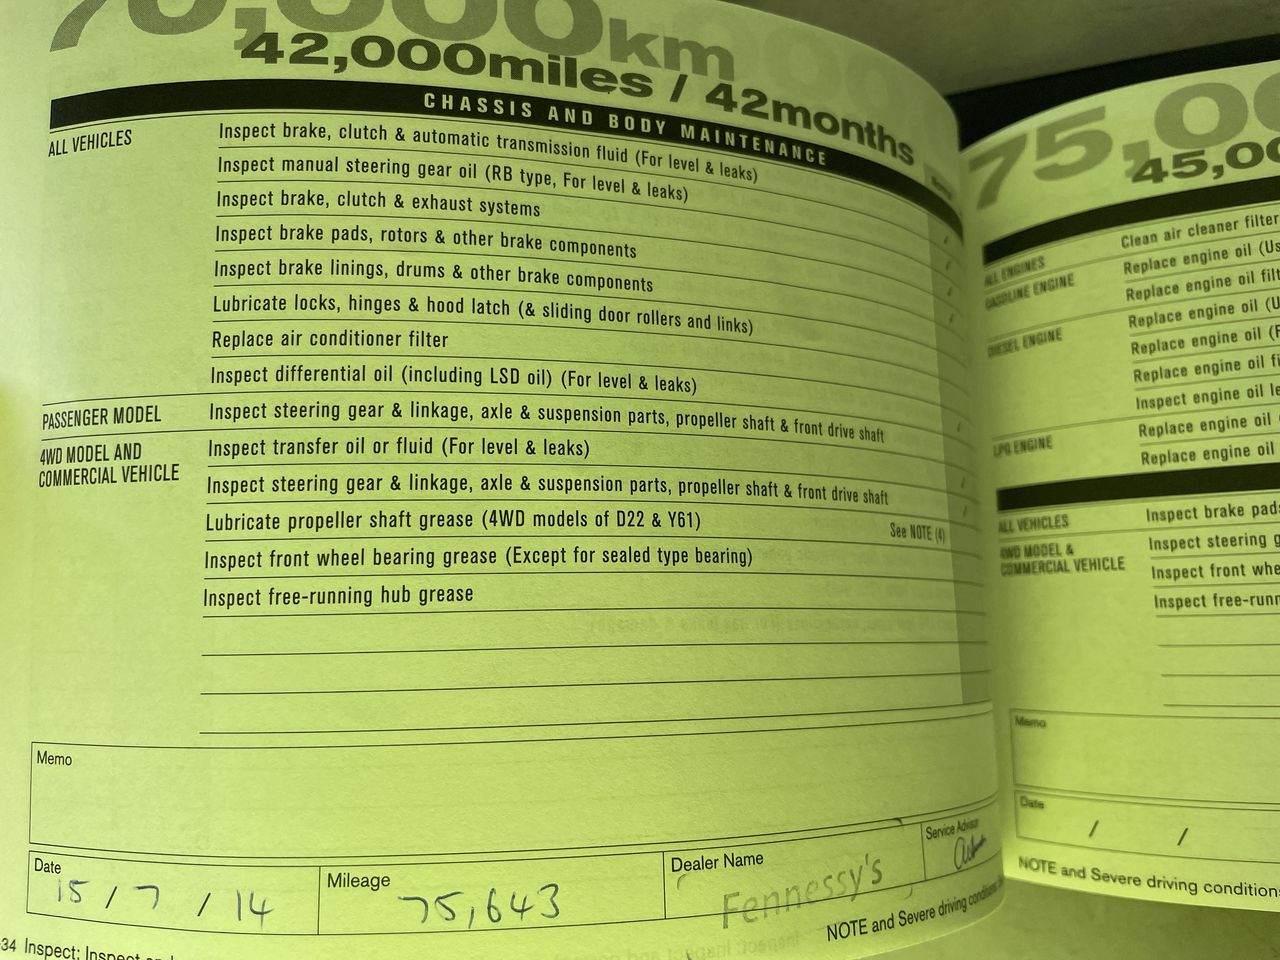 70,000km
42,000miles / 42months
CHASSIS AND BODY MAINTENANCE
ALL VEHICLES
Inspect brake, clutch & automatic transmission fluid (For level & leaks)
Inspect manual steering gear oil (RB type, For level & leaks)
Inspect brake, clutch & exhaust systems
Inspect brake pads, rotors & other brake components
Inspect brake linings, drums & other brake components
Lubricate locks, hinges & hood latch (& sliding door rollers and links)
Replace air conditioner filter
Inspect differential oil (including LSD oil) (For level & leaks)
PASSENGER MODEL
Inspect steering gear & linkage, axle & suspension parts, propeller shaft & front drive shaft
4WD MODEL AND
COMMERCIAL VEHICLE
Inspect transfer oil or fluid (For level & leaks)
Inspect steering gear & linkage, axle & suspension parts, propeller shaft & front drive shaft
Lubricate propeller shaft grease (4WD models of D22 & Y61) See NOTE (4)
Inspect front wheel bearing grease (Except for sealed type bearing)
Inspect free-running hub grease
Memo
Date
15 / 7 / 14
Mileage
75,643
Dealer Name
Fennessy's
Service Advisor
NOTE and Severe driving conditions
-34 Inspect: Inspect
75,00
45,00
Clean air cleaner filter
ALL ENGINES
GASOLINE ENGINE
Replace engine oil (Us
Replace engine oil filt
DIESEL ENGINE
Replace engine oil (U
Replace engine oil (F
Replace engine oil fi
Inspect engine oil le
LPG ENGINE
Replace engine oil
Replace engine oil
ALL VEHICLES
Inspect brake pads
4WD MODEL &
COMMERCIAL VEHICLE
Inspect steering g
Inspect front whe
Inspect free-runn
Memo
Date
/ /
NOTE and Severe driving conditions